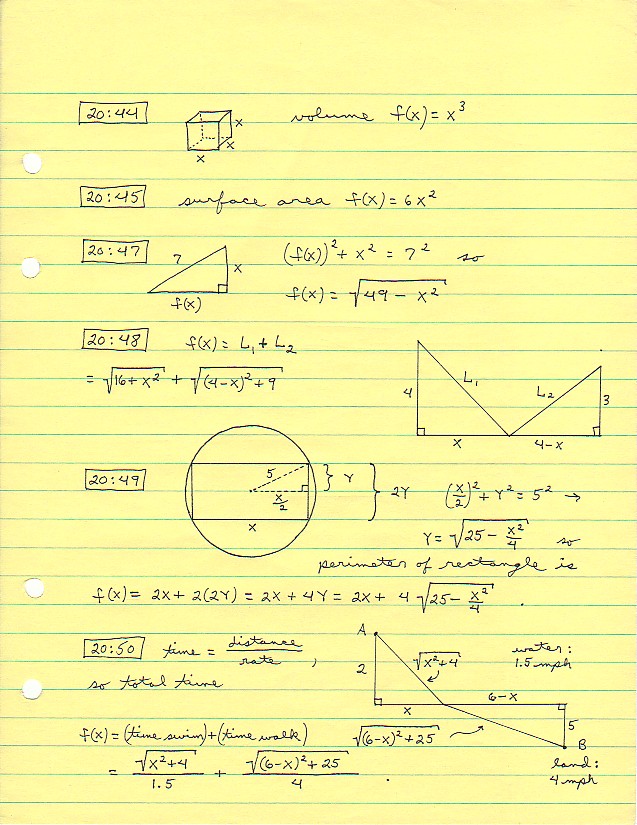 20:44
volume f(x) = x³
x
x
x
20:45 surface area f(x) = 6x²
20:47
7
x
f(x)
(f(x))² + x² = 7² so
f(x) = √(49 - x²)
20:48 f(x) = L₁ + L₂
= √(16 + x²) + √((4-x)² + 9)
4
L₁
L₂
3
x
4-x
20:49
5
x/2
x
} Y
} 2Y
(x/2)² + Y² = 5² →
Y = √(25 - x²/4) so
perimeter of rectangle is
f(x) = 2x + 2(2Y) = 2x + 4Y = 2x + 4 √(25 - x²/4) .
20:50 time = distance/rate ,
so total time
A
2
√(x²+4)
water:
1.5 mph
x
6-x
5
√((6-x)² + 25)
B
land:
4 mph
f(x) = (time swim) + (time walk)
= √(x²+4)/1.5 + √((6-x)² + 25)/4 .